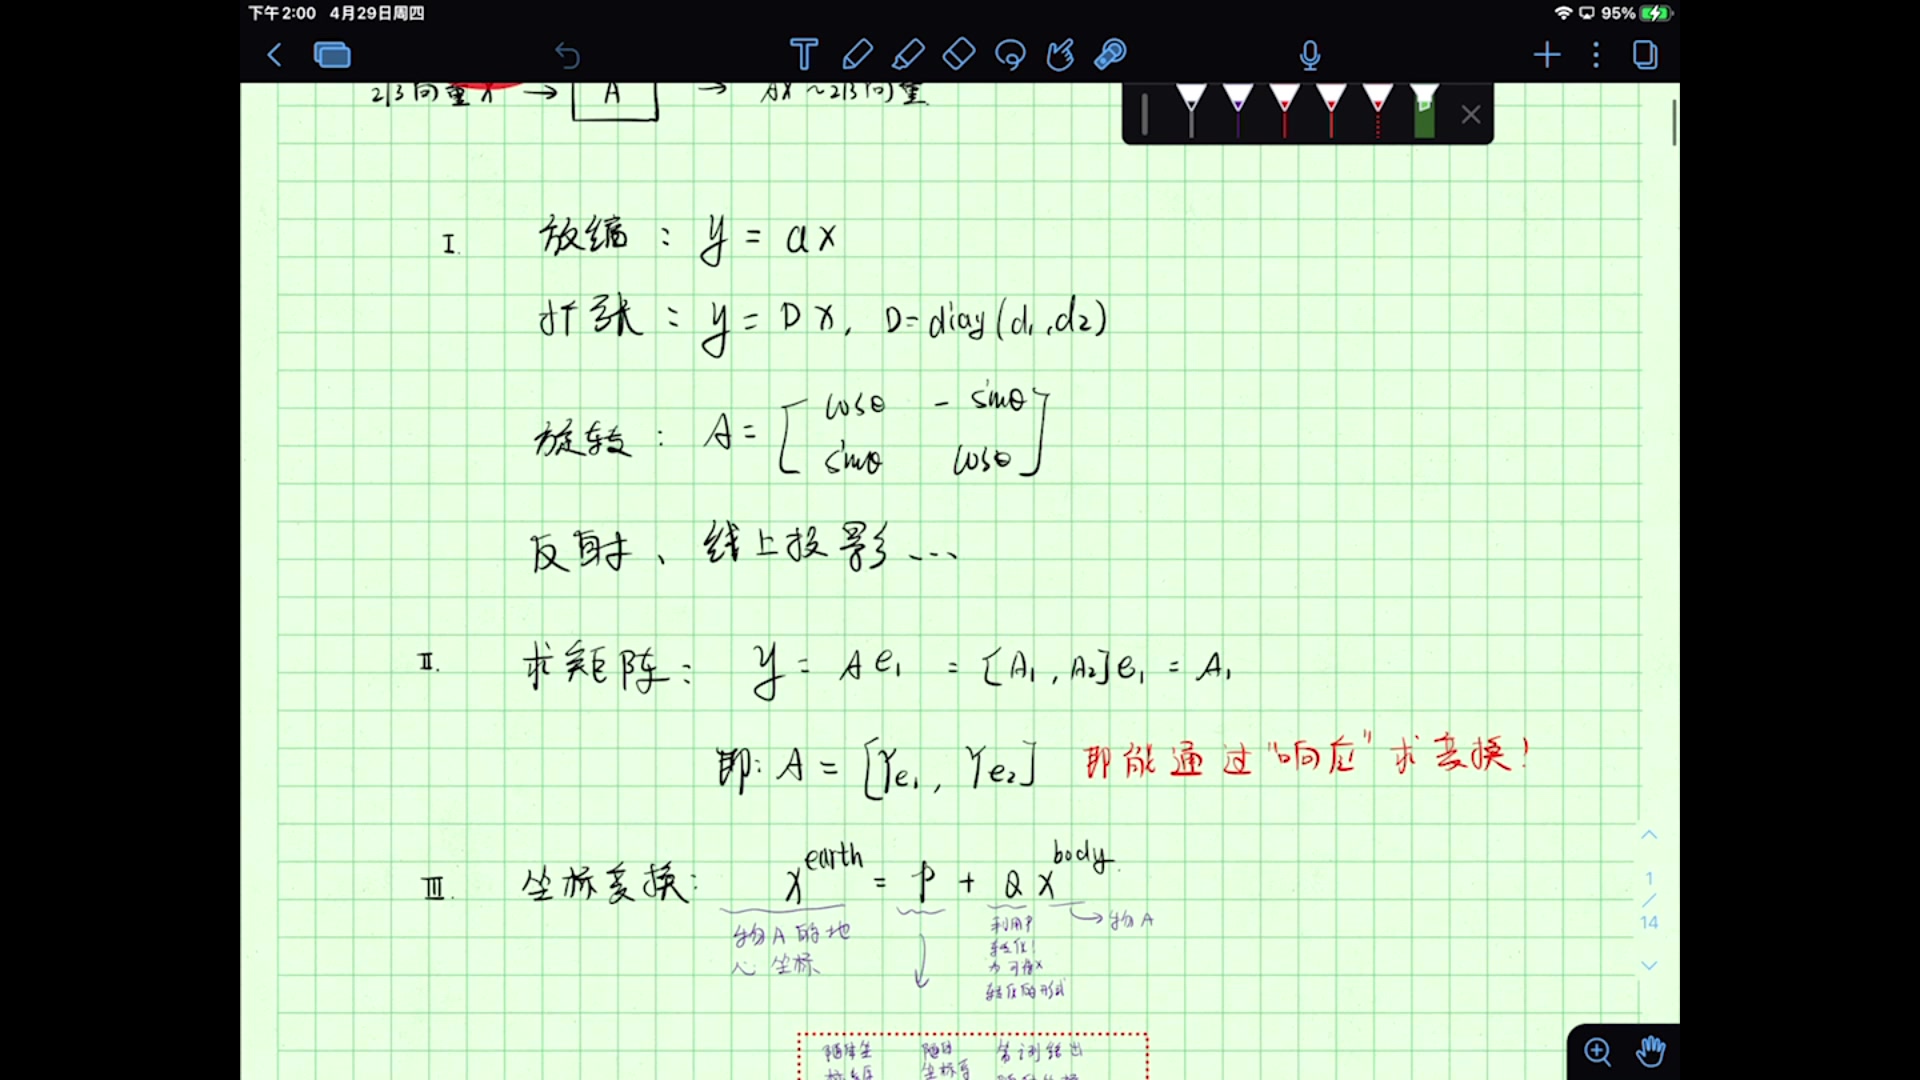 下午2:00 4月29日周四
95%
2|3向量x → A → AX ~ 2|3向量
I. 放缩: y = ax
扩张: y = Dx, D=diag(d1,d2)
旋转: A= [cosθ -sinθ
sinθ cosθ]
反射、线上投影...
II. 求矩阵: y = Ae1 = [A1, A2]e1 = A1
即: A = [Ye1, Ye2] 即能通过"响应"求变换!
III. 坐标变换: x^earth = P + Q x^body
物A的地
心坐标
利用P
转化!
为可借x
转化的形式
→物A
1
/
14
随体坐
随体
坐标系